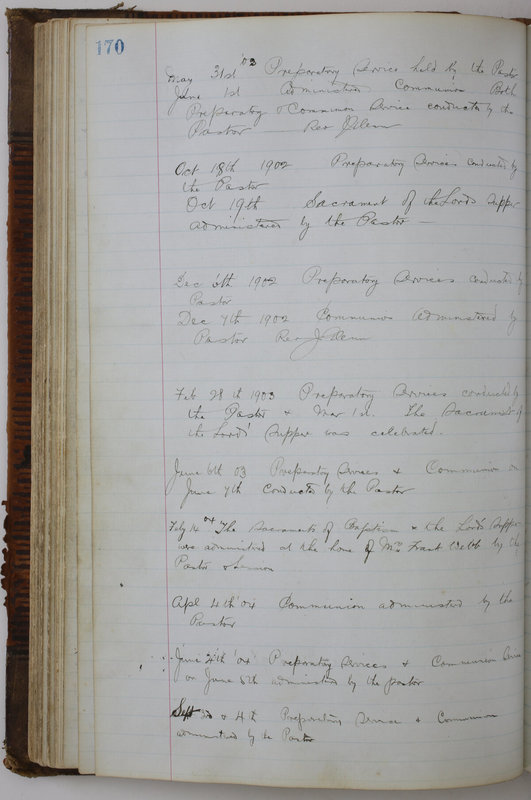 170
May 31st '02 Preparatory Service held by the Pastor
June 1st Administered Communion Both
Preparatory & Communion Service conducted by the
Pastor Rev J Glenn
Oct 18th 1902 Preparatory Services conducted by
the Pastor
Oct 19th Sacrament of the Lords Supper
administered by the Pastor
Dec 6th 1902 Preparatory Services conducted by
Pastor
Dec 7th 1902 Communion administered by
Pastor Rev J Glenn
Feb 28th 1903 Preparatory Services conducted by
the Pastor & Mar 1st. The Sacrament of
the Lords' Supper was celebrated.
June 6th 03 Preparatory Services & Communion on
June 7th conducted by the Pastor
Feby 14 '04 The Sacraments of Baptism & the Lord's Supper
was administered at the home of Mrs Frank Webb by the
Pastor & Sermon
Apl 4th '04 Communion administed by the
Pastor
June 4th '04 Preparatory Services & Communion Service
on June 5th administed by the pastor
Sept 3d & 4th Preparatory Service & Communion
administed by the Pastor